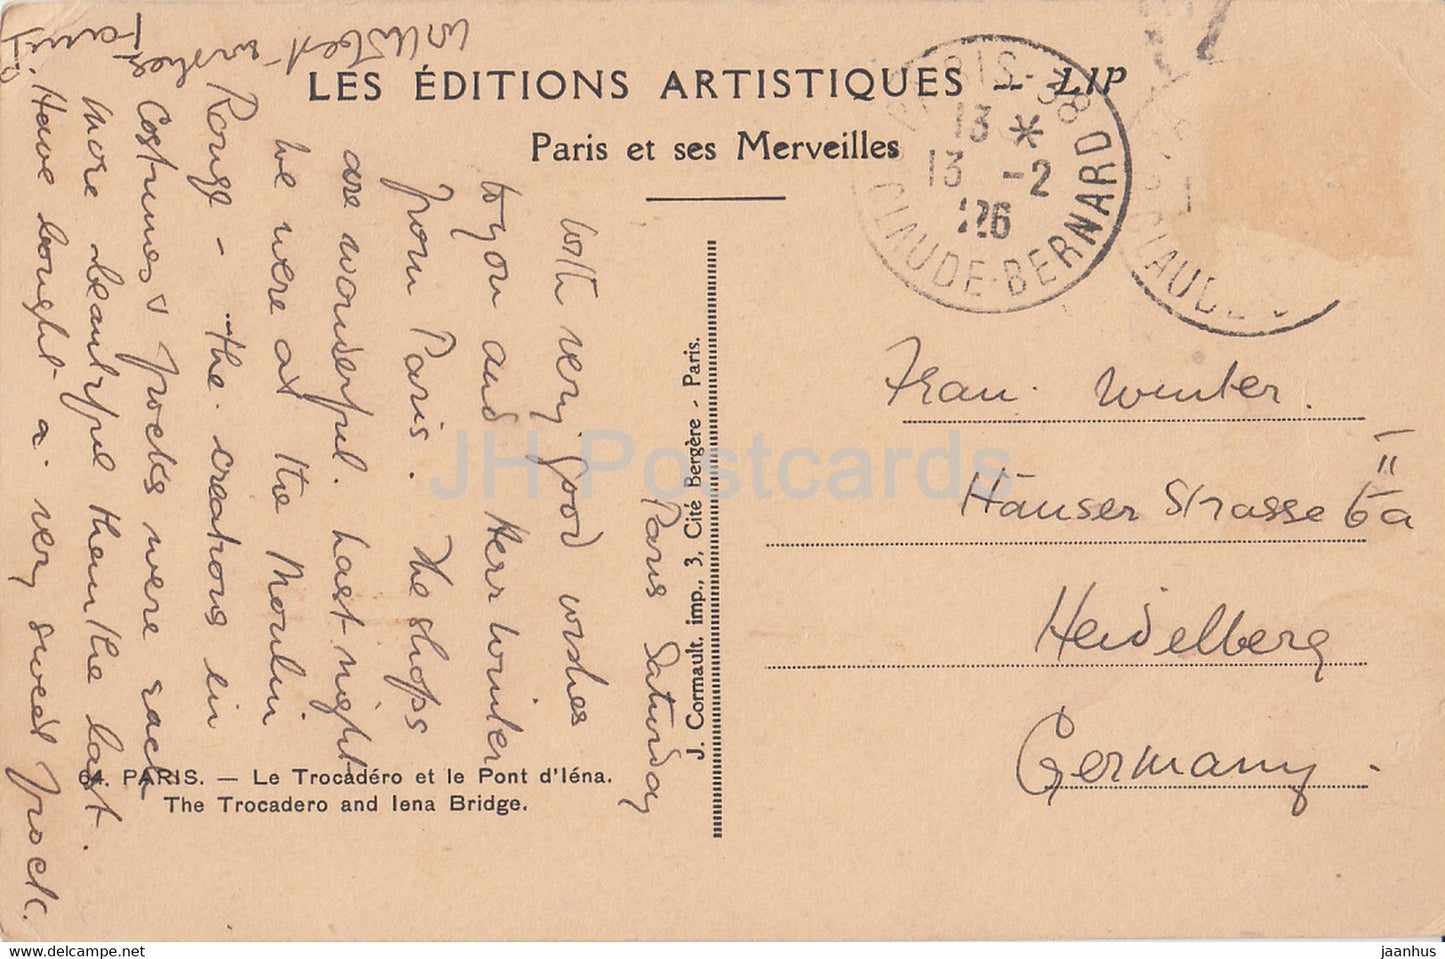 LES ÉDITIONS ARTISTIQUES — LIP
Paris et ses Merveilles
PARIS - 38
13 *
13 -2
26
CLAUDE-BERNARD
CLAUDE
Paris Saturday
With very good wishes
to you and Herr Winter
from Paris. The shops
are wonderful. Last night
we were at the Moulin
Rouge - the creations in
Costumes & frocks were each
more beautiful than the last.
Have bought a very sweet frock.
with best wishes
Frau Winter.
Häuser Strasse 6a
Heidelberg
Germany.
J. Cormault, imp., 3, Cité Bergère - Paris.
64. PARIS. — Le Trocadéro et le Pont d'Iéna.
The Trocadero and Iena Bridge.
JH Postcards
www.delcampe.net
jaanhus